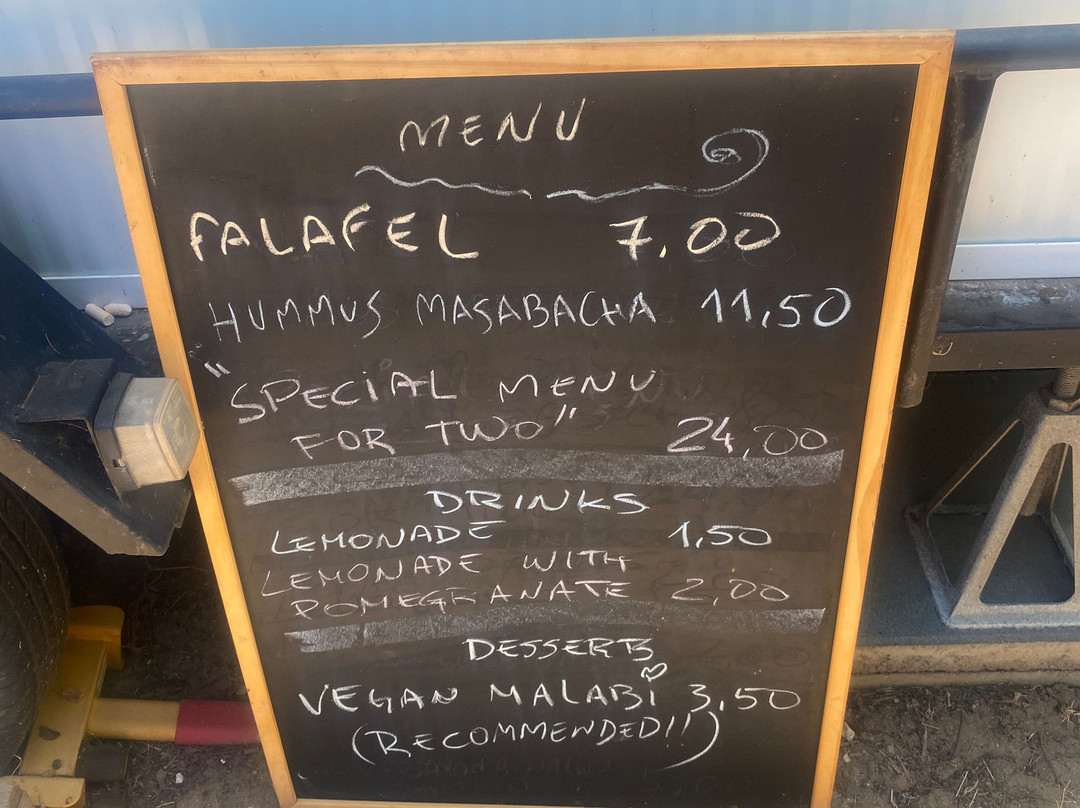 MENU
FALAFEL 7.00
HUMMUS MASABACHA 11,50
"SPECIAL MENU
FOR TWO" 24,00
DRINKS
LEMONADE 1,50
LEMONADE WITH
POMEGRANATE 2,00
DESSERTS
VEGAN MALABI 3,50
(RECOMMENDED!!)